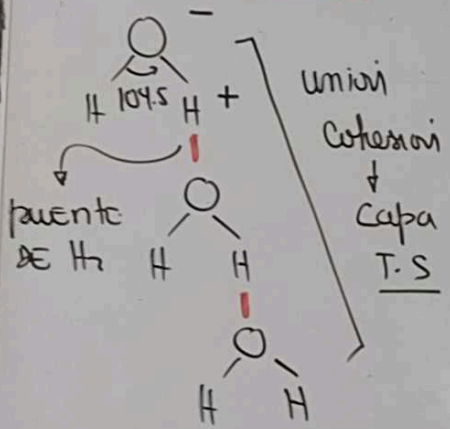 O −
H 104.5 H +
O
puente
DE H₂
H H
O
H H
unión
Cohesión
↓
Capa
T.S